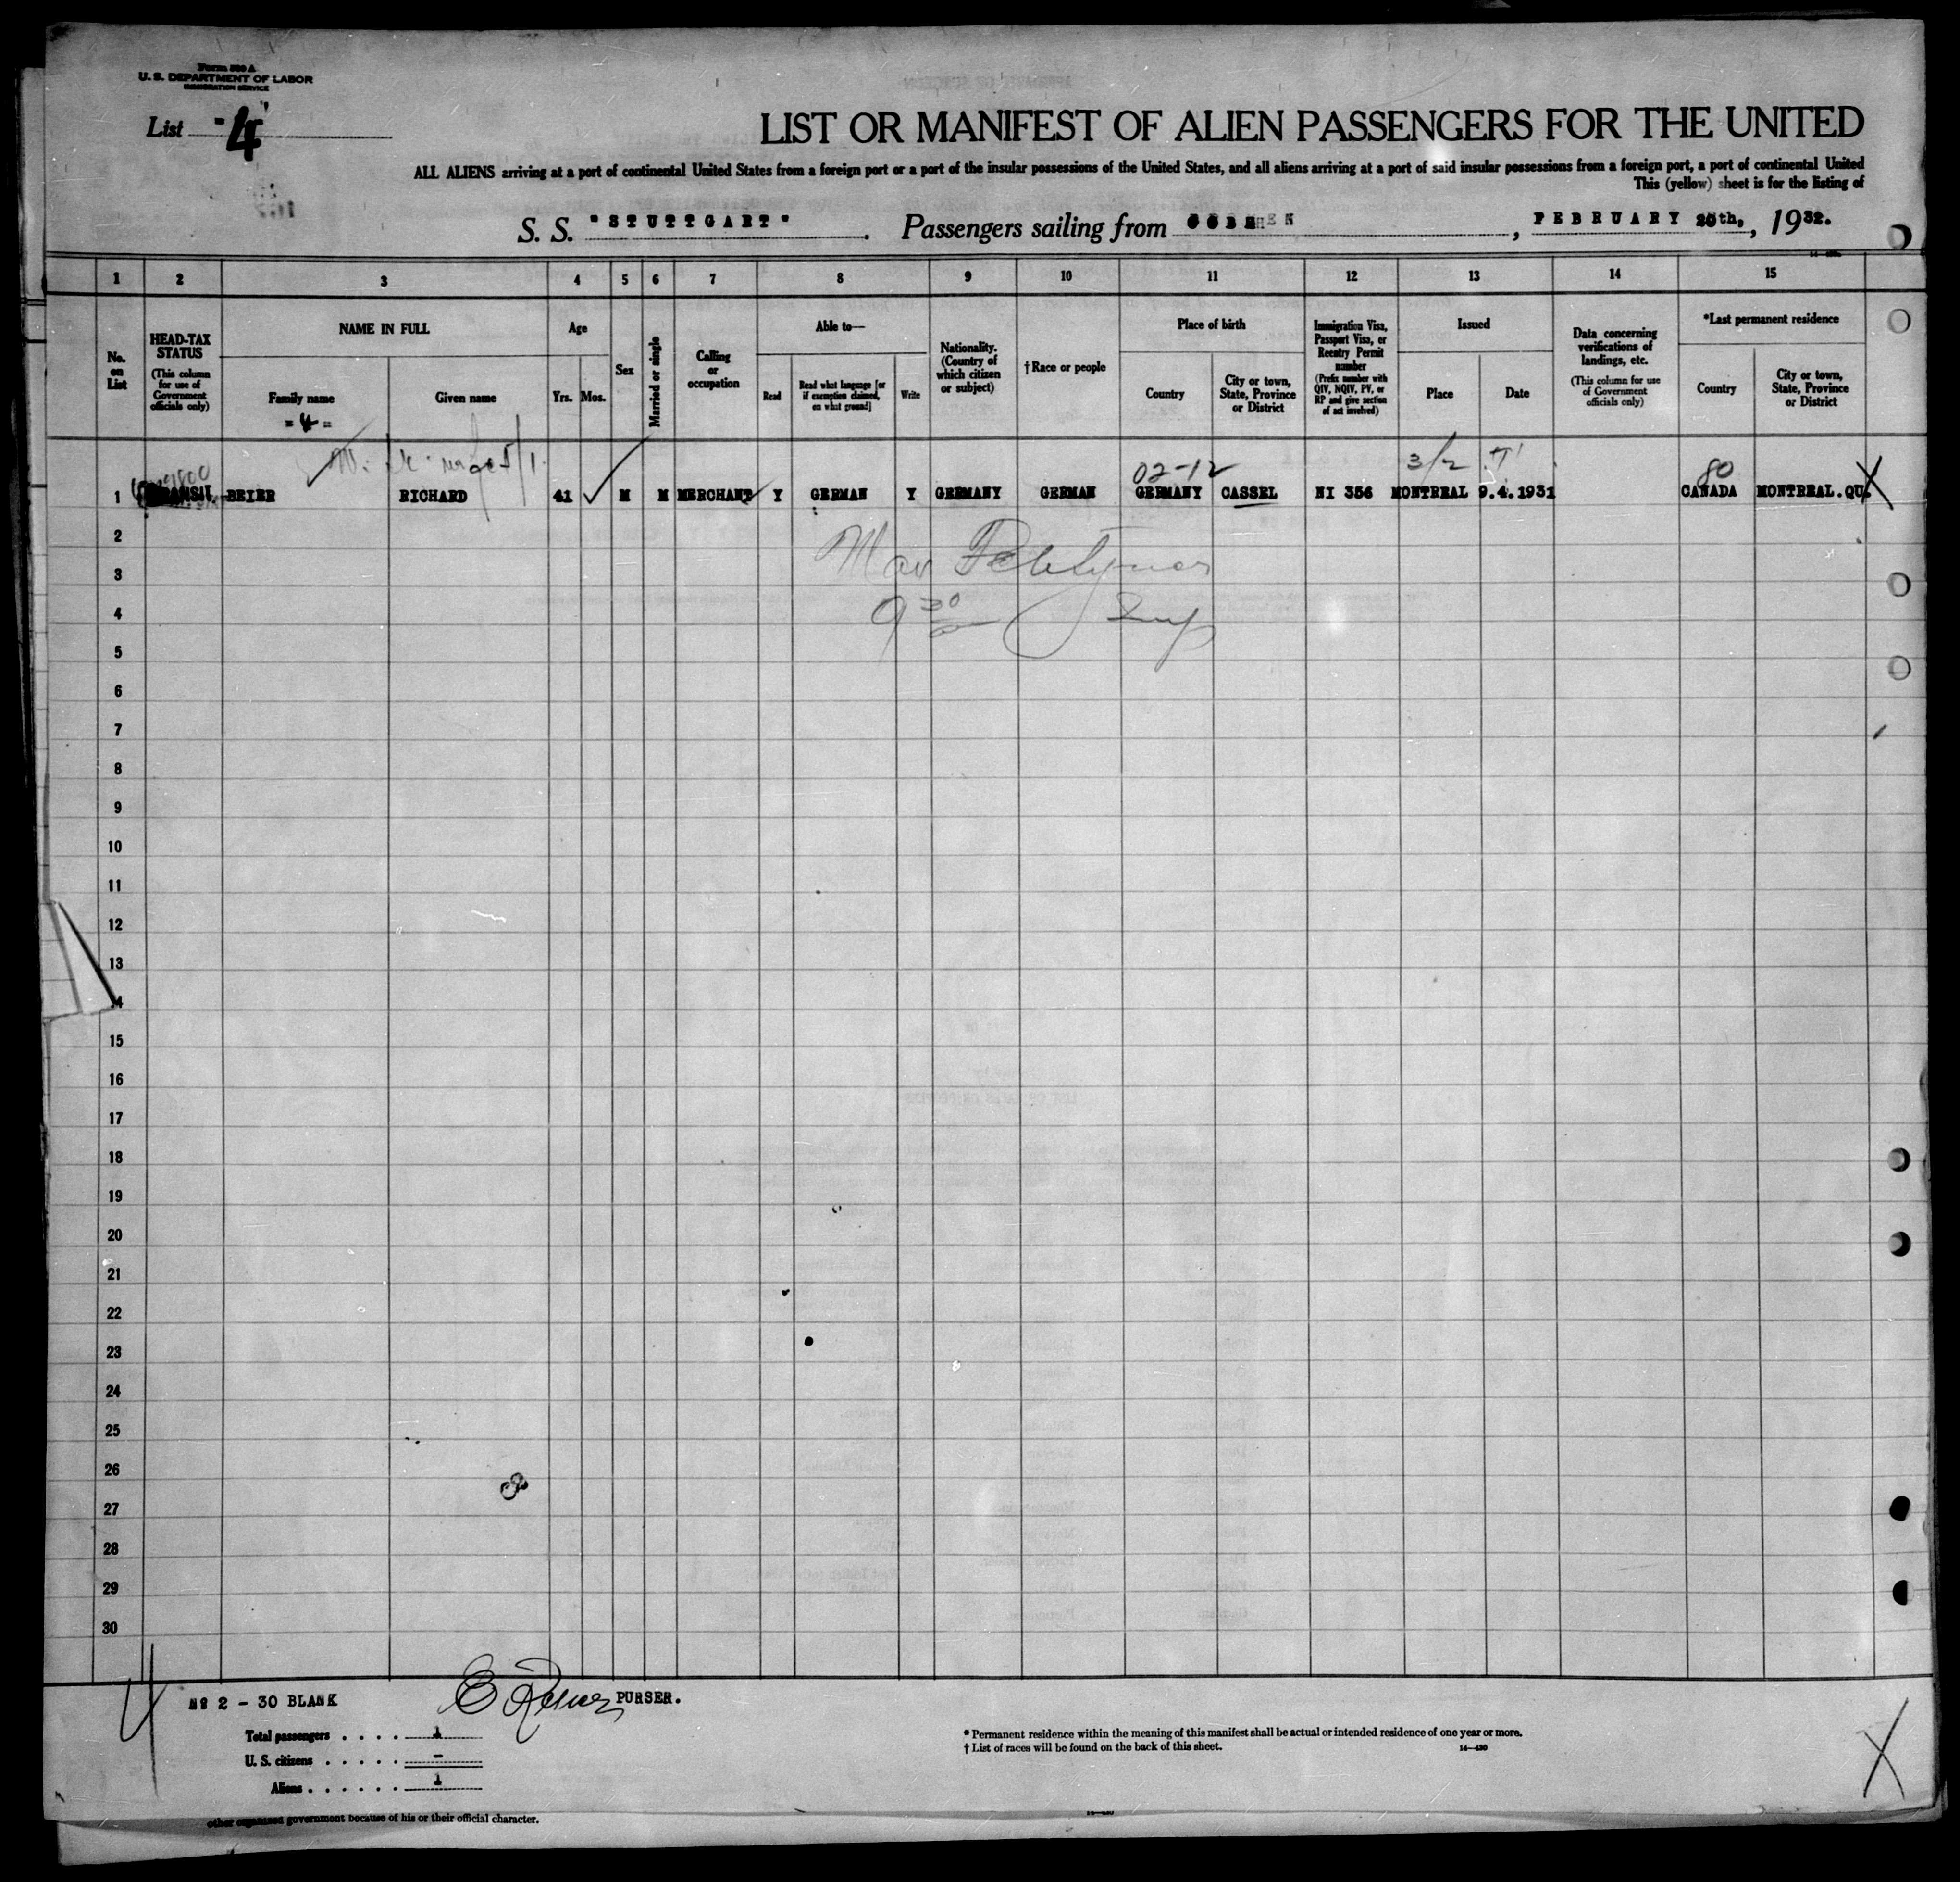 Form 500 A
U. S. DEPARTMENT OF LABOR
IMMIGRATION SERVICE
List 4
LIST OR MANIFEST OF ALIEN PASSENGERS FOR THE UNITED
ALL ALIENS arriving at a port of continental United States from a foreign port or a port of the insular possessions of the United States, and all aliens arriving at a port of said insular possessions from a foreign port, a port of continental United
This (yellow) sheet is for the listing of
S. S. "STUTTGART" . Passengers sailing from , FEBRUARY 25th, , 1932.
1 2 3 4 5 6 7 8 9 10 11 12 13 14 15
No. on List
HEAD-TAX STATUS
(This column for use of Government officials only)
NAME IN FULL
Family name
- 4 -
Given name
Age
Yrs. Mos.
Sex
Married or single
Calling or occupation
Able to—
Read
Read what language [or if exemption claimed, on what ground]
Write
Nationality. (Country of which citizen or subject)
†Race or people
Place of birth
Country
City or town, State, Province or District
Immigration Visa, Passport Visa, or Reentry Permit number
(Prefix number with QIV, NQIV, PV, or RP and give section of act involved)
Issued
Place
Date
Data concerning verifications of landings, etc.
(This column for use of Government officials only)
*Last permanent residence
Country
City or town, State, Province or District
02-12 3/2 80
1 TRANSIT BEIER RICHARD 41 M M MERCHANT Y GERMAN Y GERMANY GERMAN GERMANY CASSEL NI 356 MONTREAL 9.4.1931 CANADA MONTREAL.QU.
2
3
4 9 30
5
6
7
8
9
10
11
12
13
14
15
16
17
18
19
20
21
22
23
24
25
26
27
28
29
30
4
No 2 - 30 BLANK PURSER.
Total passengers . . . . 1
U. S. citizens . . . . . -
Aliens . . . . . . 1
* Permanent residence within the meaning of this manifest shall be actual or intended residence of one year or more.
† List of races will be found on the back of this sheet.
14—430
X
other organized government because of his or their official character.